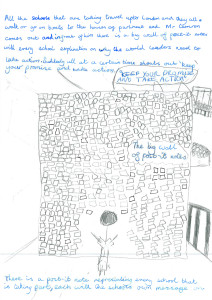 All the schools that are taking travel upto London and they all
walk or go on boats to the houses of parliment and Mr Cameron
comes out and infront of him there is a big wall of post-it notes
with every school explination on why the world leaders need to
take action. Suddenly all at a certain time shouts out "keep
your promise and take action"
KEEP YOUR PROMISE
AND TAKE ACTION
The big wall
of post-it notes
there is a post-it note representing every school that
is taking part, each with the schools own message on